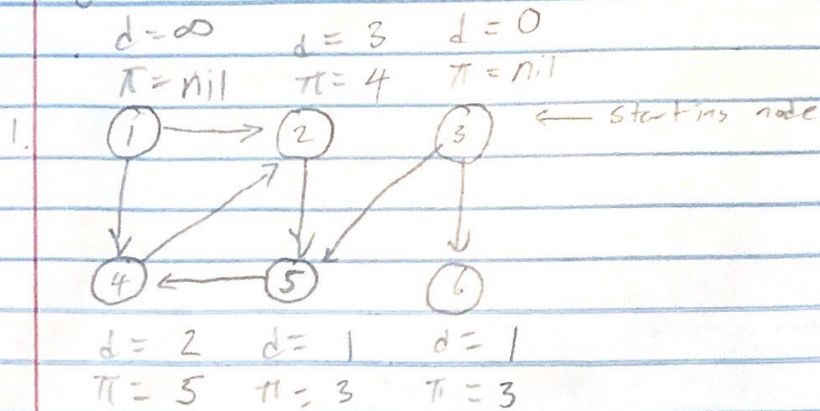 d=∞ d = 3 d = 0
π = nil π = 4 π = nil
1. 1 2 3 ← starting node
4 5 6
d = 2 d = 1 d = 1
π = 5 π = 3 π = 3